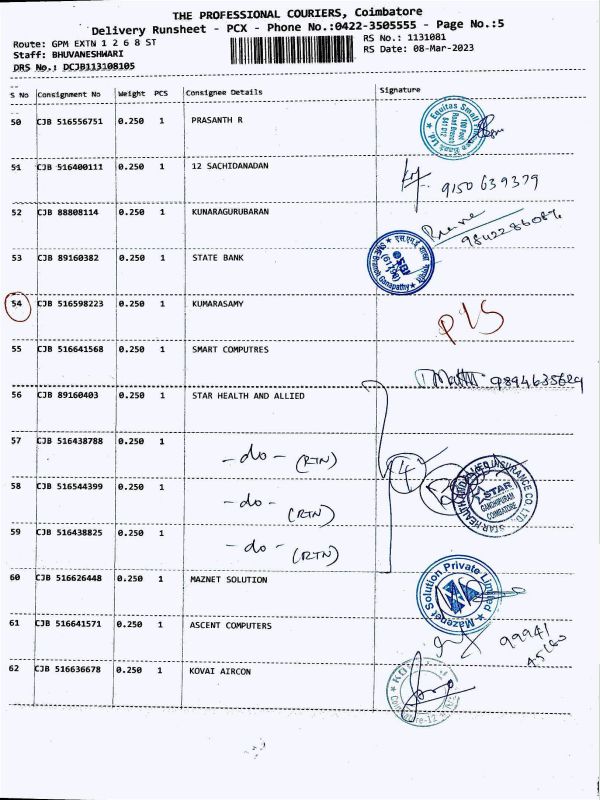 THE PROFESSIONAL COURIERS, Coimbatore
Delivery Runsheet - PCX - Phone No.:0422-3505555 - Page No.:5
Route: GPM EXTN 1 2 6 8 ST
RS No.: 1131081
Staff: BHUVANESHWARI
RS Date: 08-Mar-2023
DRS No.: DCJB113108105
S No Consignment No Weight PCS Consignee Details Signature
50 CJB 516556751 0.250 1 PRASANTH R
Equitas Small
100 Feet
51 CJB 516400111 0.250 1 12 SACHIDANADAN
9150639379
52 CJB 88808114 0.250 1 KUNARAGURUBARAN
53 CJB 89160382 0.250 1 STATE BANK
SBI
54 CJB 516598223 0.250 1 KUMARASAMY
55 CJB 516641568 0.250 1 SMART COMPUTRES
9894635629
56 CJB 89160403 0.250 1 STAR HEALTH AND ALLIED
57 CJB 516438788 0.250 1 -do- (RTN)
4
58 CJB 516544399 0.250 1 -do- (RTN)
STAR HEALTH AND ALLIED INSURANCE CO. LTD.
STAR
GANDHIPURAM
COIMBATORE
59 CJB 516438825 0.250 1 -do- (RTN)
60 CJB 516626448 0.250 1 MAZNET SOLUTION
Mazenet Solution Private Limited
61 CJB 516641571 0.250 1 ASCENT COMPUTERS
99941
62 CJB 516636678 0.250 1 KOVAI AIRCON
Coimbatore-12